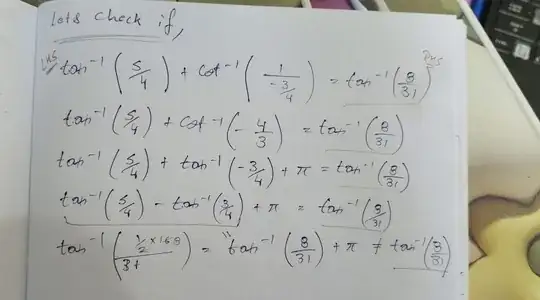 lets check if,
LHS tan⁻¹(5/4) + cot⁻¹(1/(-3/4)) = tan⁻¹(8/31) RHS
tan⁻¹(5/4) + cot⁻¹(-4/3) = tan⁻¹(8/31)
tan⁻¹(5/4) + tan⁻¹(-3/4) + π = tan⁻¹(8/31)
tan⁻¹(5/4) - tan⁻¹(3/4) + π = tan⁻¹(8/31)
= tan⁻¹(8/31) + π ≠ tan⁻¹(8/31)